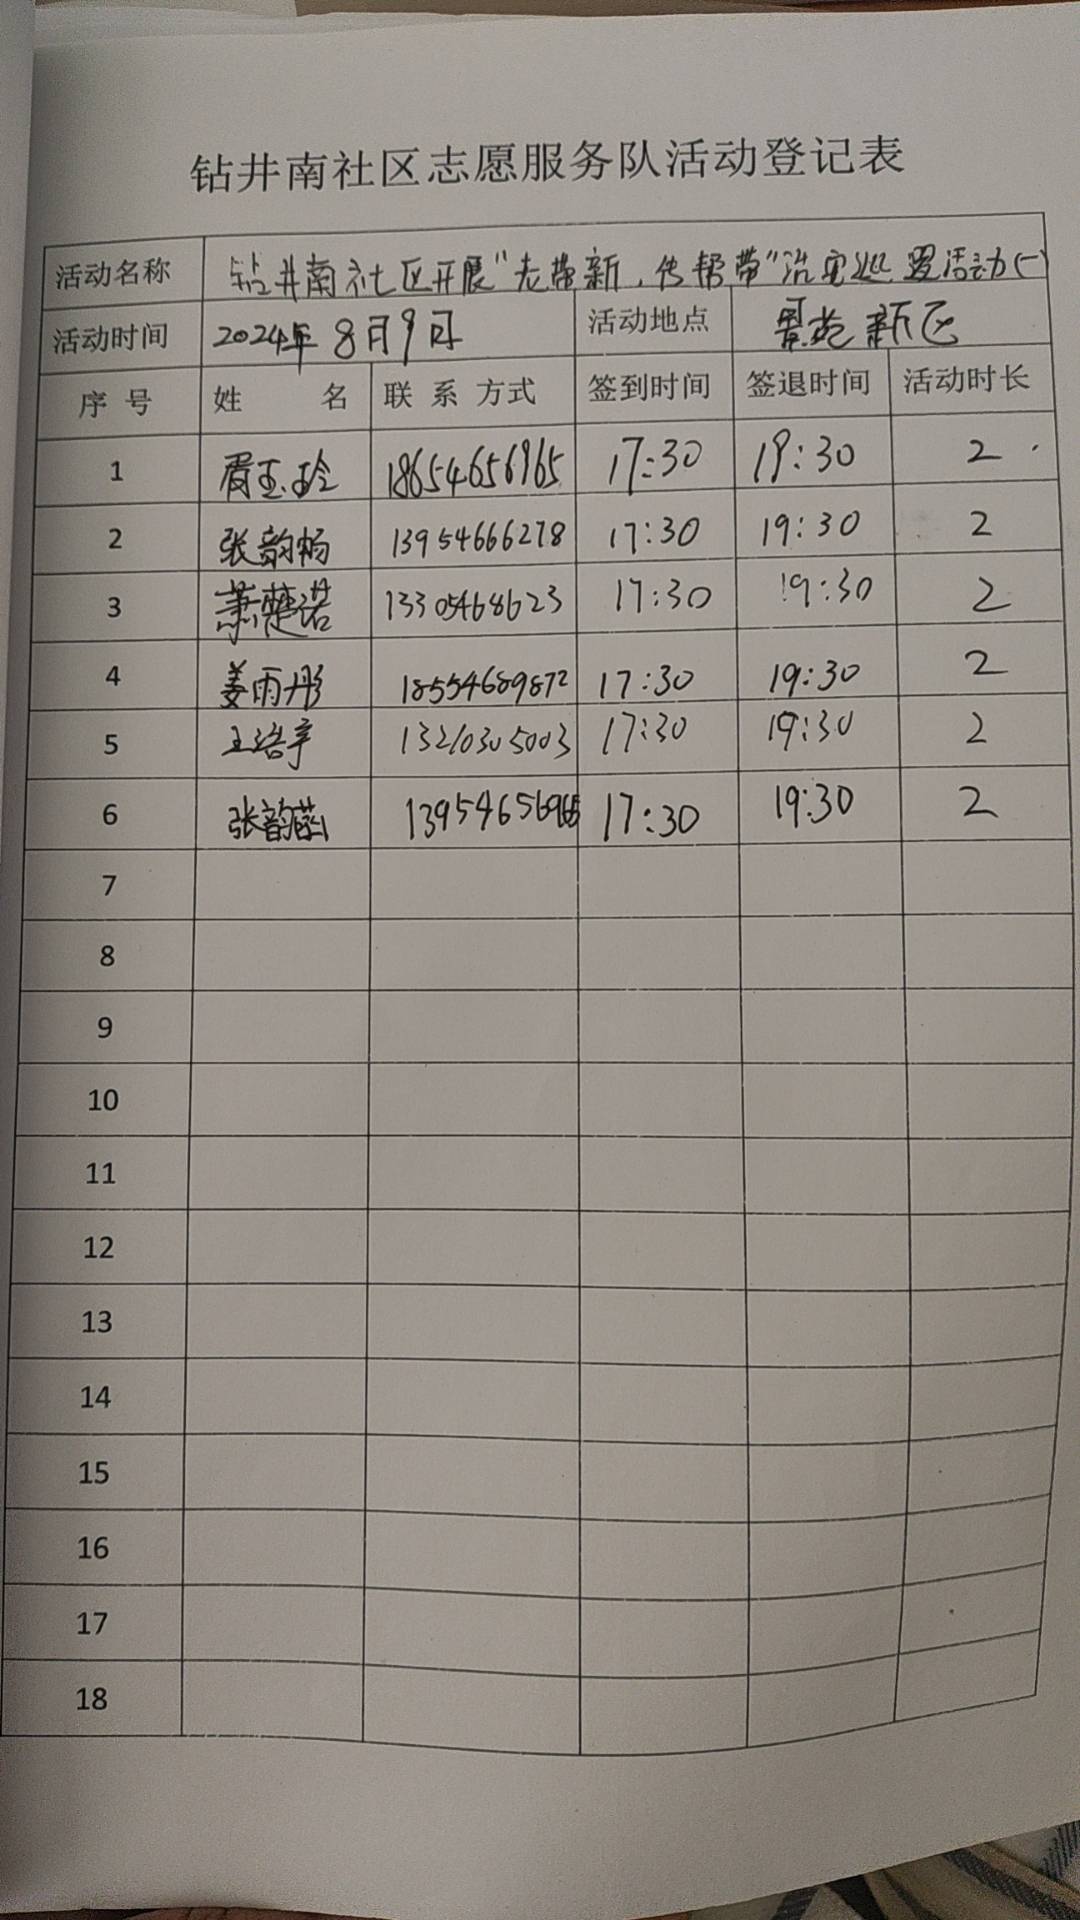 钻井南社区志愿服务队活动登记表
活动名称 钻井南社区开展"老带新，传帮带"治安巡逻活动(一)
活动时间 2024年8月9日 活动地点 景苑新区
序 号 姓 名 联 系 方式 签到时间 签退时间 活动时长
1 玉玲 18654656965 17:30 19:30 2
2 张韵畅 13954666278 17:30 19:30 2
3 萧楚诺 13305468623 17:30 19:30 2
4 姜雨彤 18554689872 17:30 19:30 2
5 王浩宇 13210305003 17:30 19:30 2
6 张韵菡 17:30 19:30 2
7
8
9
10
11
12
13
14
15
16
17
18